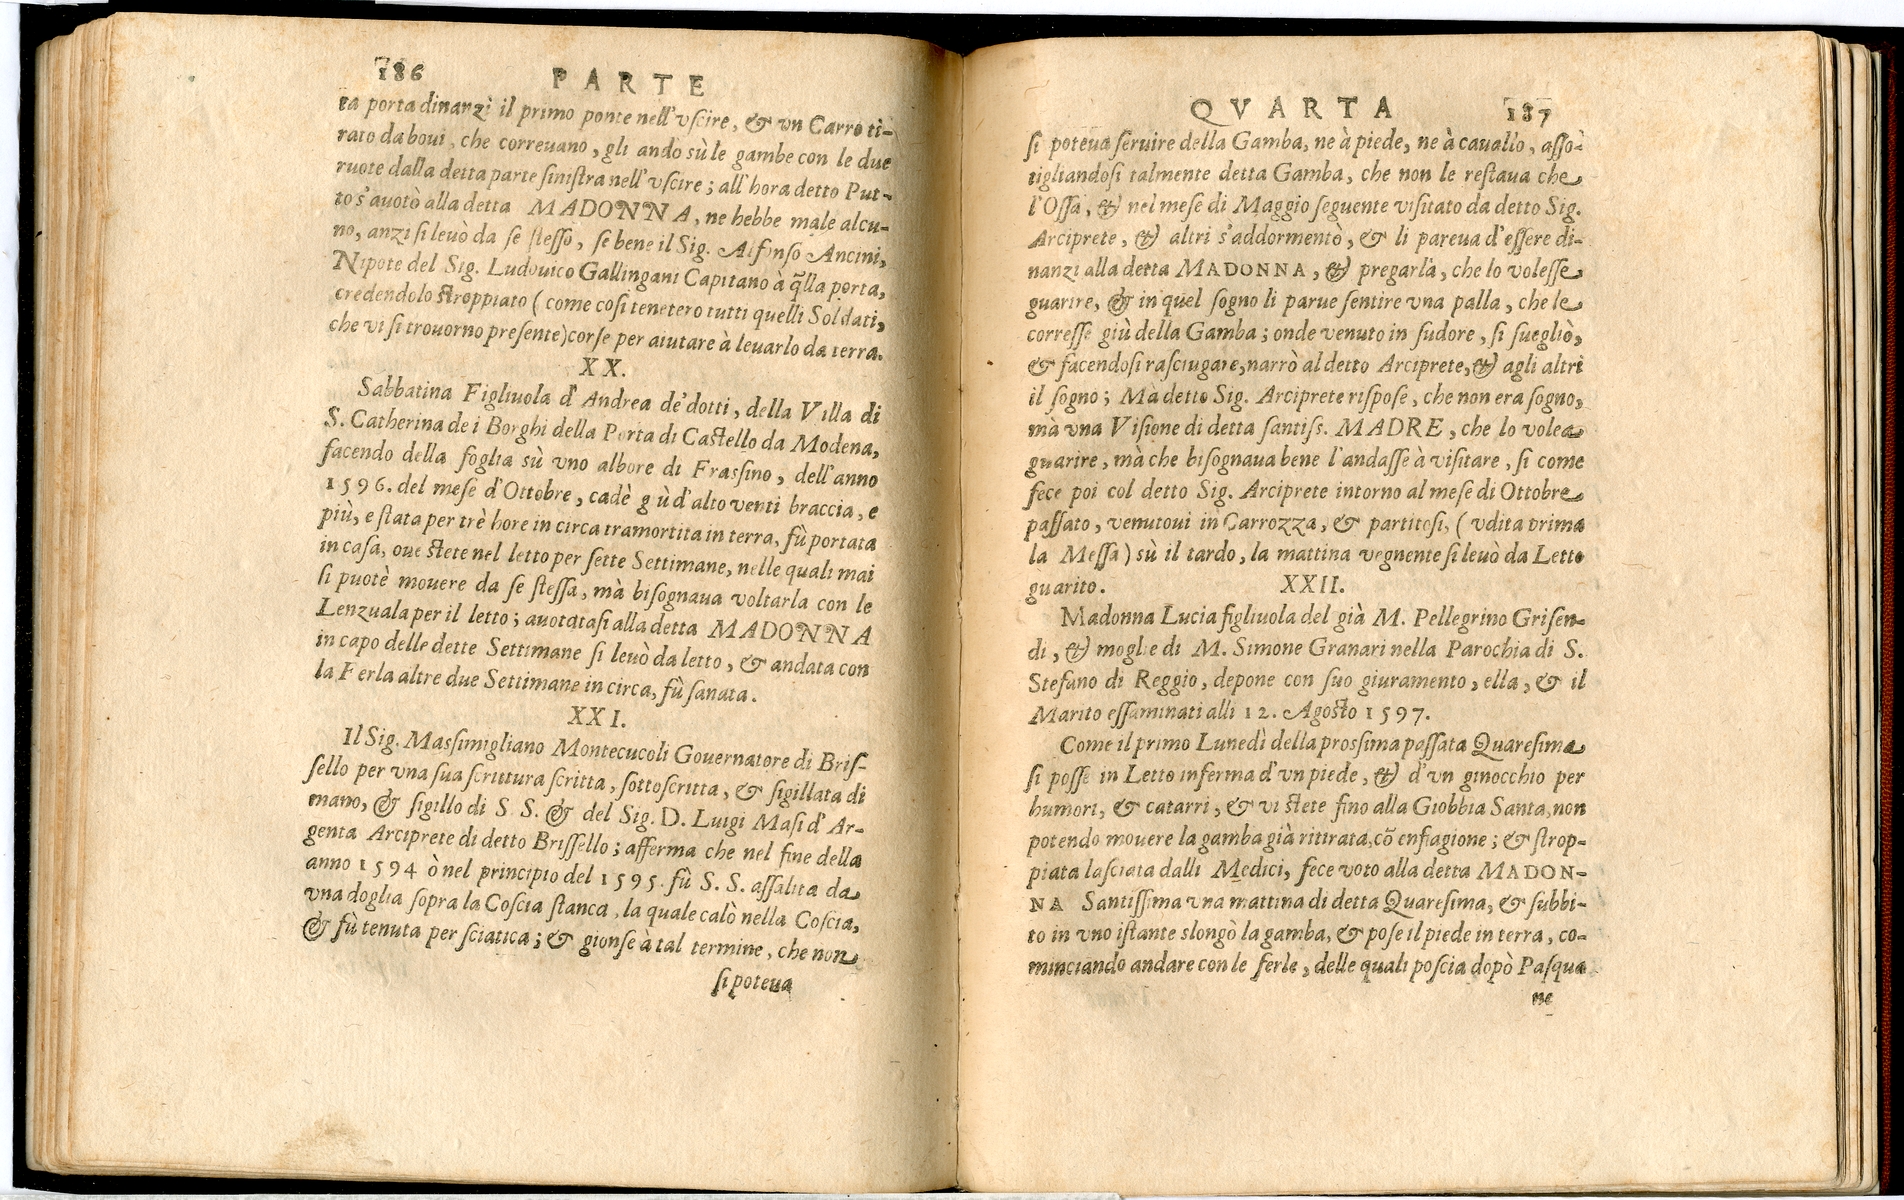 186 PARTE
ta porta dinanzi il primo ponte nell'vscire, & vn Carro ti-
rato da boui, che correuano, gli andò sù le gambe con le due
ruote dalla detta parte sinistra nell'vscire; all'hora detto Put-
to s'auotò alla detta MADONNA, ne hebbe male alcu-
no, anzi si leuò da se stesso, se bene il Sig. Alfonso Ancini,
Nipote del Sig. Ludouico Gallingani Capitano à q̃lla porta,
credendolo stroppiato (come così tenetero tutti quelli Soldati,
che vi si trouorno presente) corse per aiutare à leuarlo da terra.
XX.
Sabbatina Figliuola d'Andrea de'dotti, della Villa di
S. Catherina de i Borghi della Porta di Castello da Modena,
facendo della foglia sù vno albore di Frassino, dell'anno
1596. del mese d'Ottobre, cadè g ù d'alto venti braccia, e
più, e stata per trè hore in circa tramortita in terra, fù portata
in casa, oue stete nel letto per sette Settimane, nelle quali mai
si puotè mouere da se stessa, mà bisognaua voltarla con le
Lenzuala per il letto; auotatasi alla detta MADONNA
in capo delle dette Settimane si leuò da letto, & andata con
la Ferla altre due Settimane in circa, fù sanata.
XXI.
Il Sig. Massimigliano Montecucoli Gouernatore di Bris-
sello per vna sua scrittura scritta, sottoscritta, & sigillata di
mano, & sigillo di S S. & del Sig. D. Luigi Masi d'Ar-
genta Arciprete di detto Brissello; afferma che nel fine della
anno 1594 ò nel principio del 1595. fù S. S. assalita da
vna doglia sopra la Coscia stanca, la quale calò nella Coscia,
& fù tenuta per sciatica; & gionse a tal termine, che non
si poteua
QVARTA 187
si poteua seruire della Gamba, ne à piede, ne à cauallo, asso-
tigliandosi talmente detta Gamba, che non le restaua che
l'Ossa, & nel mese di Maggio seguente visitato da detto Sig.
Arciprete, & altri s'addormentò, & li pareua d'essere di-
nanzi alla detta MADONNA, & pregarla, che lo volesse
guarire, & in quel sogno li parue sentire vna palla, che le
corresse giù della Gamba; onde venuto in sudore, si suegliò,
& facendosi rasciugare, narrò al detto Arciprete, & agli altri
il sogno; Mà detto Sig. Arciprete rispose, che non era sogno,
mà vna Visione di detta santiss. MADRE, che lo volea
guarire, mà che bisognaua bene l'andasse à visitare, si come
fece poi col detto Sig. Arciprete intorno al mese di Ottobre
passato, venutoui in Carrozza, & partitosi, (vdita prima
la Messa) sù il tardo, la mattina vegnente si leuò da Letto
guarito. XXII.
Madonna Lucia figliuola del già M. Pellegrino Grisen-
di, & moglie di M. Simone Granari nella Parochia di S.
Stefano di Reggio, depone con suo giuramento, ella, & il
Marito essaminati alli 12. Agosto 1597.
Come il primo Lunedì della prossima passata Quaresima
si posse in Letto inferma d'vn piede, & d'vn ginocchio per
humori, & catarri, & vi stete fino alla Giobbia Santa, non
potendo mouere la gamba già ritirata, cõ enfiagione; & strop-
piata lasciata dalli Medici, fece voto alla detta MADON-
NA Santissima vna mattina di detta Quaresima, & subbi-
to in vno istante slongò la gamba, & pose il piede in terra, co-
minciando andare con le ferle, delle quali poscia dopò Pasqua
ne